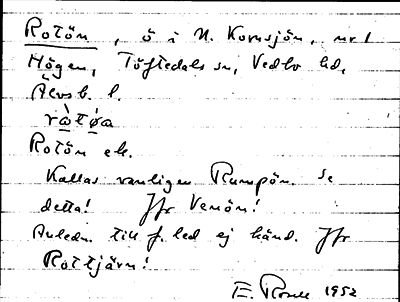 Rotön, ö i N. Kornsjön, nr 1
Högen, Töftedals sn, Vedbo hd,
Älvsb. l.
ràtøa
Rotön ek.
Kallas vanligen Rumpön. Se
detta! Jfr Venön!
Anledn. till f. led ej känd. Jfr
Rottjärn!
E. 1952